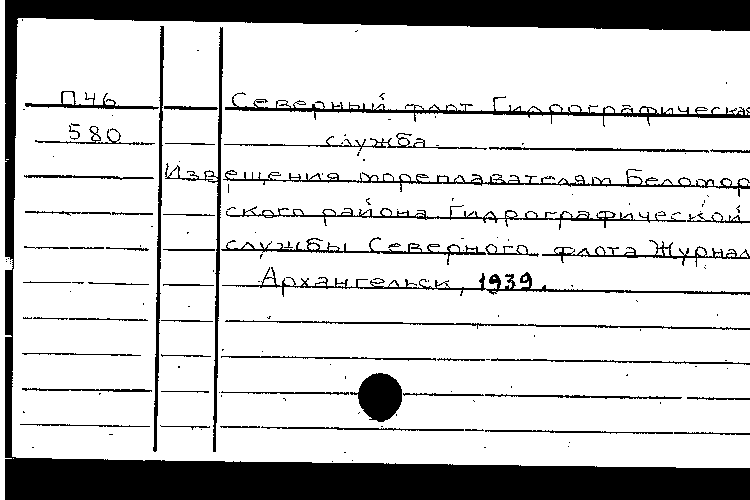 П46
Северный флот Гидрографическая
580
служба.
Извещения мореплавателям Беломор
ского района Гидрографической
службы Северного флота Журнал
Архангельск, 1939.